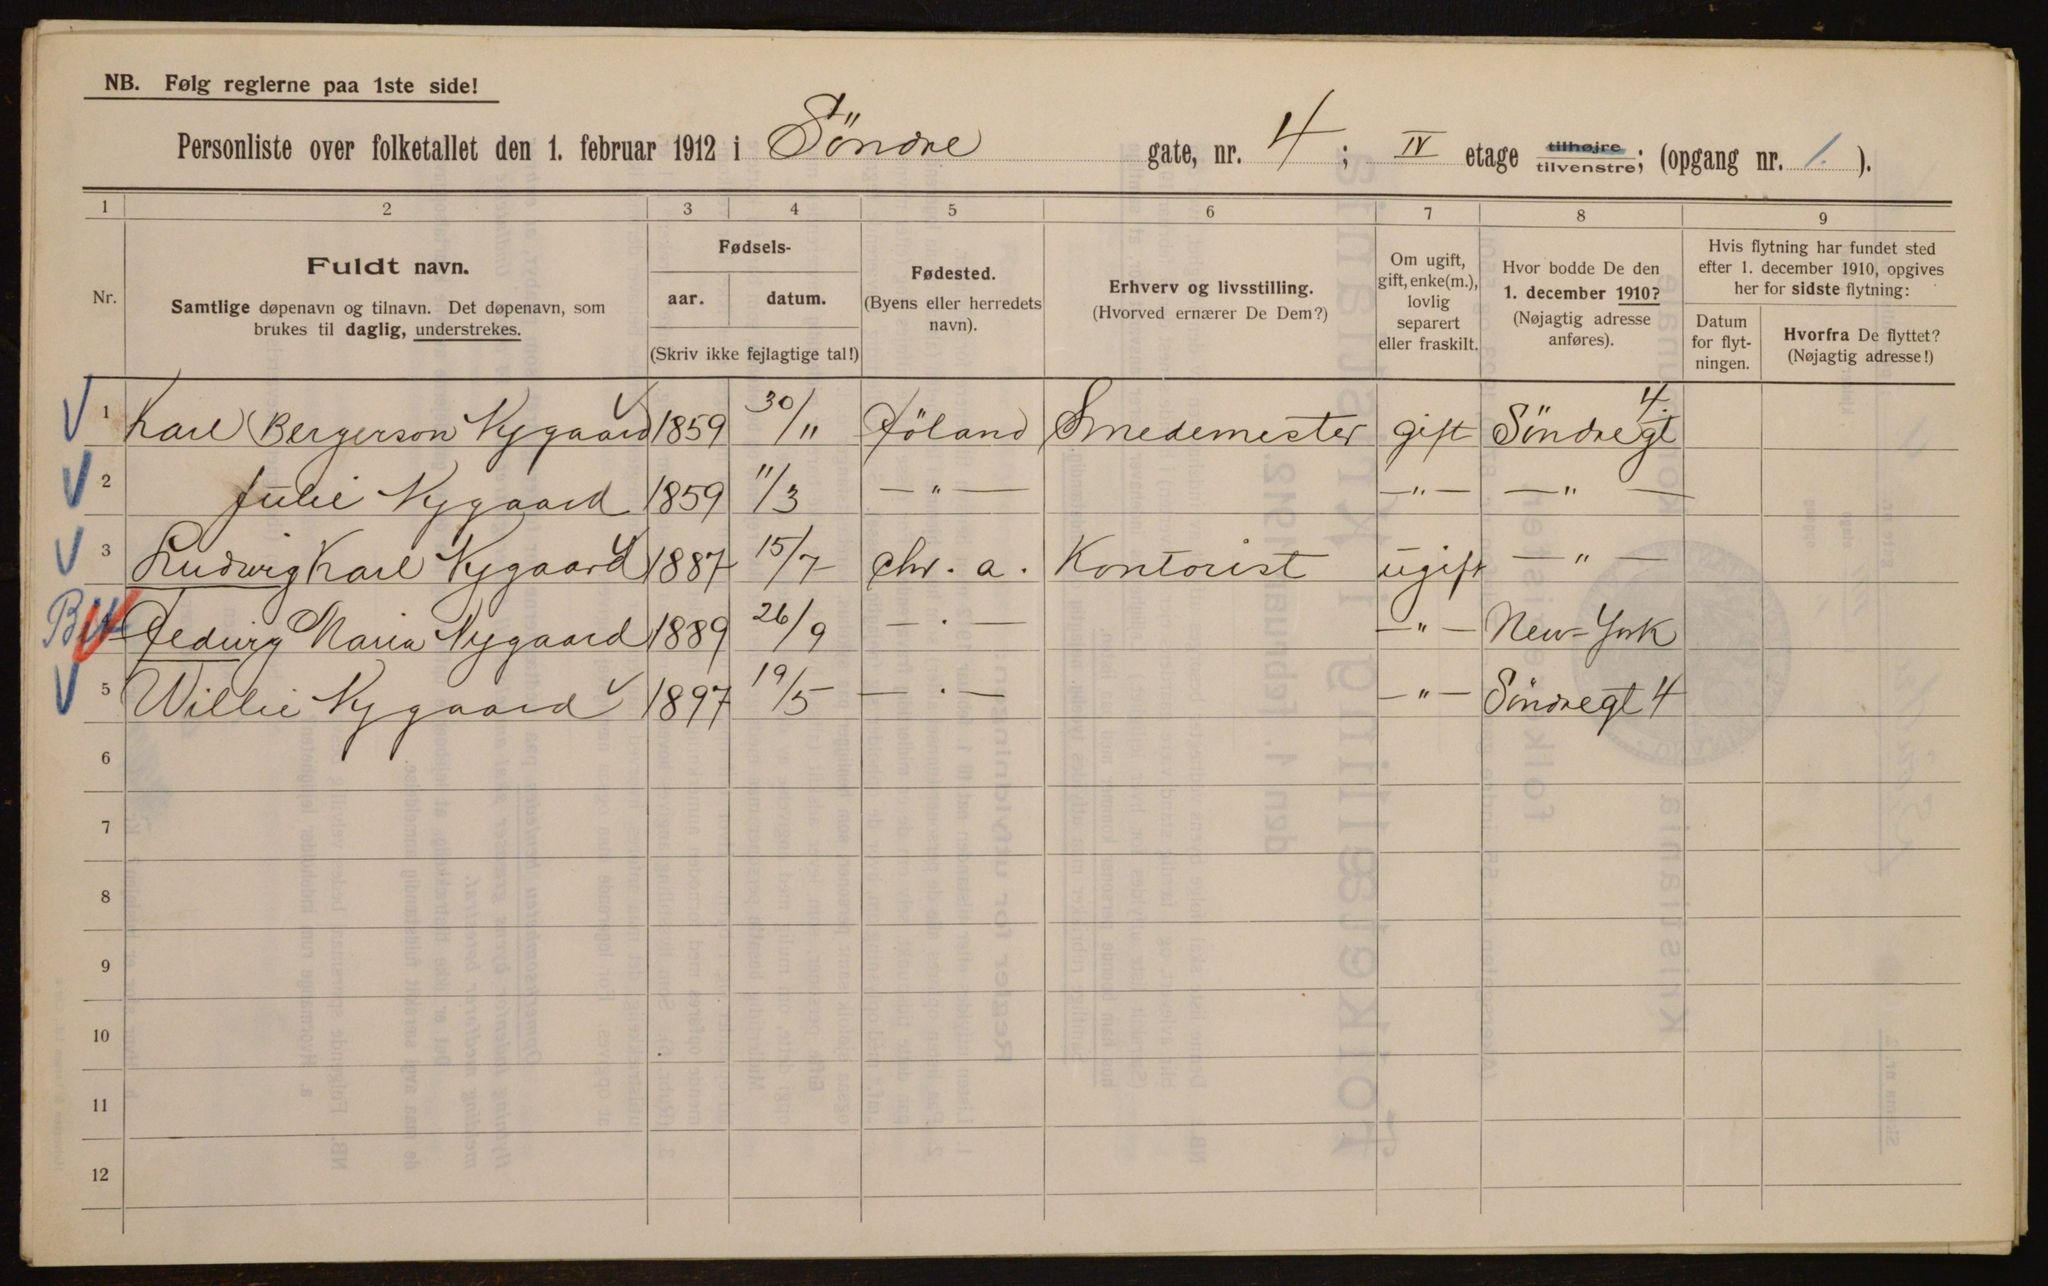 NB. Følg reglerne paa 1ste side!
Personliste over folketallet den 1. februar 1912 i Söndre gate, nr. 4 ; IV etage tilhøjre tilvenstre; (opgang nr. 1. ).
1 2 3 4 5 6 7 8 9
Nr.
Fuldt navn.
Samtlige døpenavn og tilnavn. Det døpenavn, som
brukes til daglig, understrekes.
Fødsels-
aar. datum.
(Skriv ikke fejlagtige tal!)
Fødested.
(Byens eller herredets
navn).
Erhverv og livsstilling.
(Hvorved ernærer De Dem?)
Om ugift,
gift, enke(m.),
lovlig
separert
eller fraskilt.
Hvor bodde De den
1. december 1910?
(Nøjagtig adresse
anføres).
Hvis flytning har fundet sted
efter 1. december 1910, opgives
her for sidste flytning:
Datum
for flyt-
ningen.
Hvorfra De flyttet?
(Nøjagtig adresse!)
1 Karl Bergerson Nygaard 1859 30/11 Smedemester gift Söndregt 4.
2 Julie Nygaard 1859 11/3 — " — — " — — " —
3 Ludwig Karl Nygaard 1887 15/7 Chr. a. Kontorist ugift — " —
Hedwig Maria Nygaard 1889 26/9 — " — — " — New-York
5 Willie Nygaard 1897 19/5 — " — — " — Söndregt 4
6
7
8
9
10
11
12